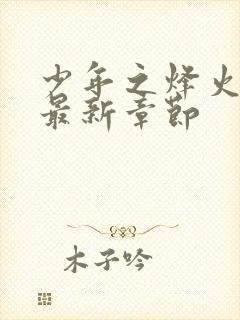 少年之烽火
最新章节
木子吟